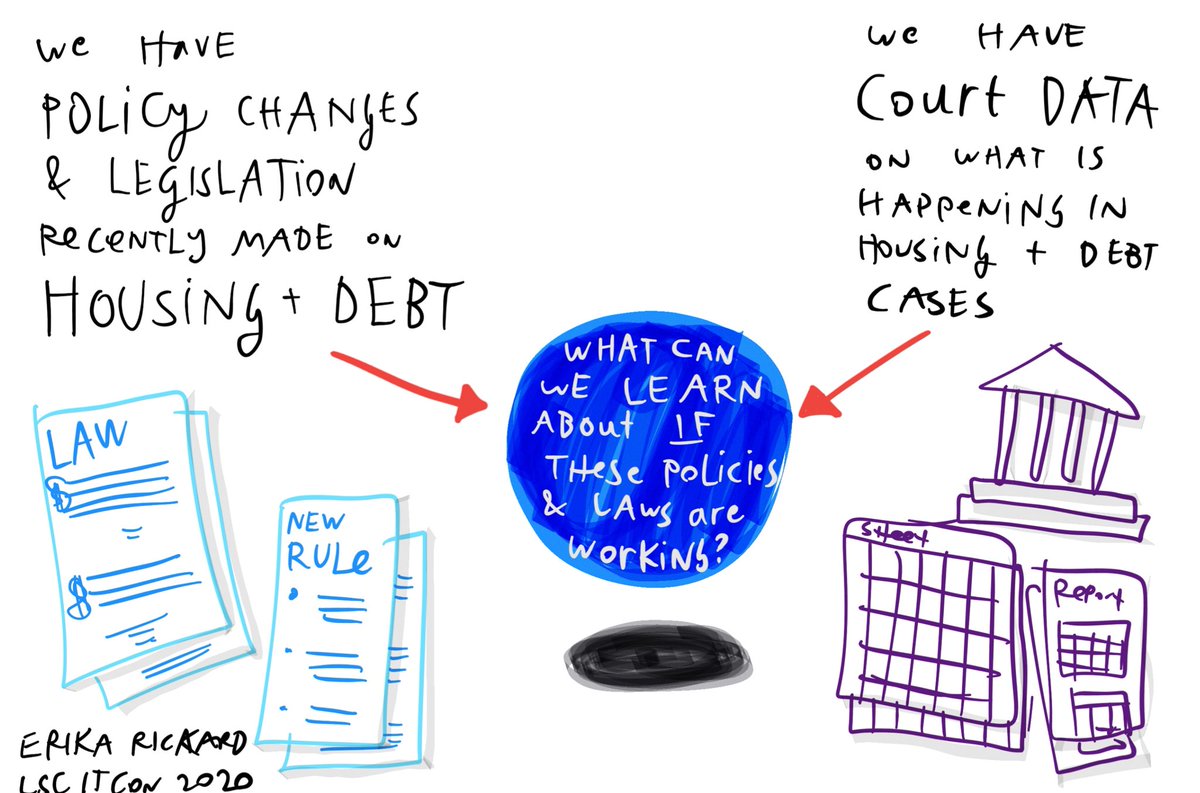 We HAVE
POLiCy CHANgES
& LEgISLATION
RECENTLY MADE ON
HOUSINg + DEBT
We HAVE
Court DATA
ON WHAT IS
HAPPENINg IN
HOUSINg + DEBT
CASES
WHAT CAN
WE LEARN
ABout IF
THESe POLiCiES
& LAws are
WORKINg?
LAW
$
$
NEW
RULe
Sheet
Report
ERIKA RICKARD
LSC ITCON 2020